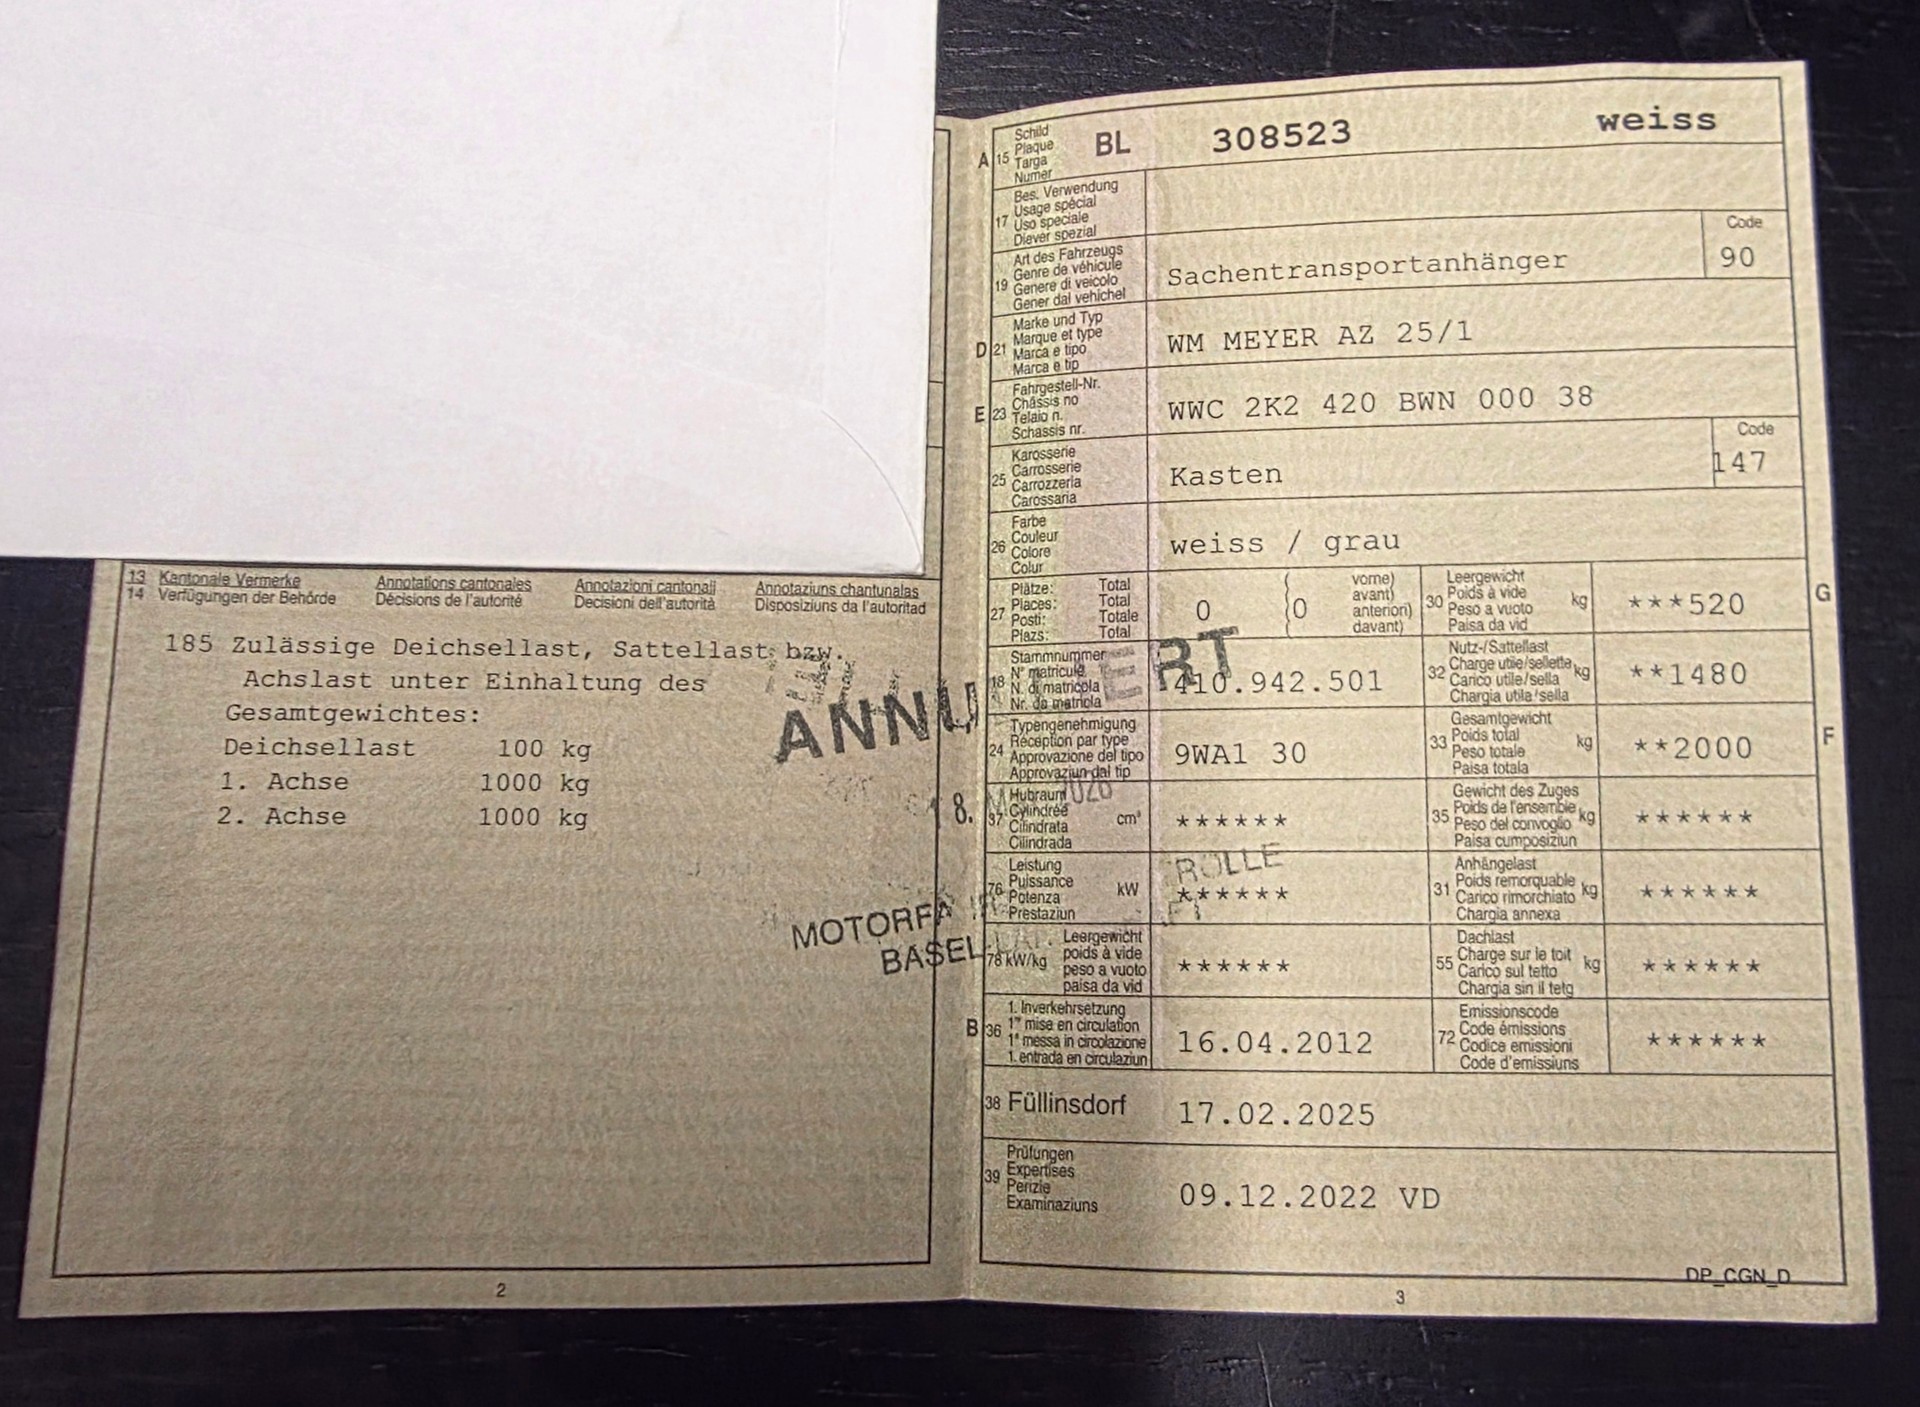 13 Kantonale Vermerke Annotations cantonales Annotazioni cantonali Annotaziuns chantunalas
14 Verfügungen der Behörde Décisions de l'autorité Decisioni dell'autorità Disposiziuns da l'autoritad
185 Zulässige Deichsellast, Sattellast bzw.
Achslast unter Einhaltung des
Gesamtgewichtes:
Deichsellast 100 kg
1. Achse 1000 kg
2. Achse 1000 kg
ANNU RT
8.
MOTORFA
BASEL
ROLLE
2
A 15 Schild
Plaque
Targa
Numer
BL 308523 weiss
17 Bes. Verwendung
Usage spécial
Uso speciale
Diever spezial
19 Art des Fahrzeugs
Genre de véhicule
Genere di veicolo
Gener dal vehichel
Sachentransportanhänger
Code
90
D 21 Marke und Typ
Marque et type
Marca e tipo
Marca e tip
WM MEYER AZ 25/1
E 23 Fahrgestell-Nr.
Châssis no
Telaio n.
Schassis nr.
WWC 2K2 420 BWN 000 38
25 Karosserie
Carrosserie
Carrozzeria
Carossaria
Kasten
Code
147
26 Farbe
Couleur
Colore
Colur
weiss / grau
27 Plätze: Total
Places: Total
Posti: Totale
Plazs: Total
0 0
vorne)
avant)
anteriori)
davant)
30 Leergewicht
Poids à vide
Peso a vuoto
Paisa da vid
kg
***520
G
18 Stammnummer
N° matricule
N. di matricola
Nr. da matricla
410.942.501
32 Nutz-/Sattellast
Charge utile/sellette
Carico utile/sella
Chargia utila/sella
kg
**1480
24 Typengenehmigung
Réception par type
Approvazione del tipo
Approvaziun dal tip
9WA1 30
33 Gesamtgewicht
Poids total
Peso totale
Paisa totala
kg
**2000
F
37 Hubraum
Cylindrée
Cilindrata
Cilindrada
cm³
******
35 Gewicht des Zuges
Poids de l'ensemble
Peso del convoglio
Paisa cumposiziun
kg
******
76 Leistung
Puissance
Potenza
Prestaziun
kW
******
31 Anhängelast
Poids remorquable
Carico rimorchiato
Chargia annexa
kg
******
78 kW/kg
Leergewicht
poids à vide
peso a vuoto
paisa da vid
******
55 Dachlast
Charge sur le toit
Carico sul tetto
Chargia sin il tetg
kg
******
B 36 1. Inverkehrsetzung
1re mise en circulation
1a messa in circolazione
1. entrada en circulaziun
16.04.2012
72 Emissionscode
Code émissions
Codice emissioni
Code d'emissiuns
******
38 Füllinsdorf
17.02.2025
39 Prüfungen
Expertises
Perizie
Examinaziuns
09.12.2022 VD
DP_CGN_D
3